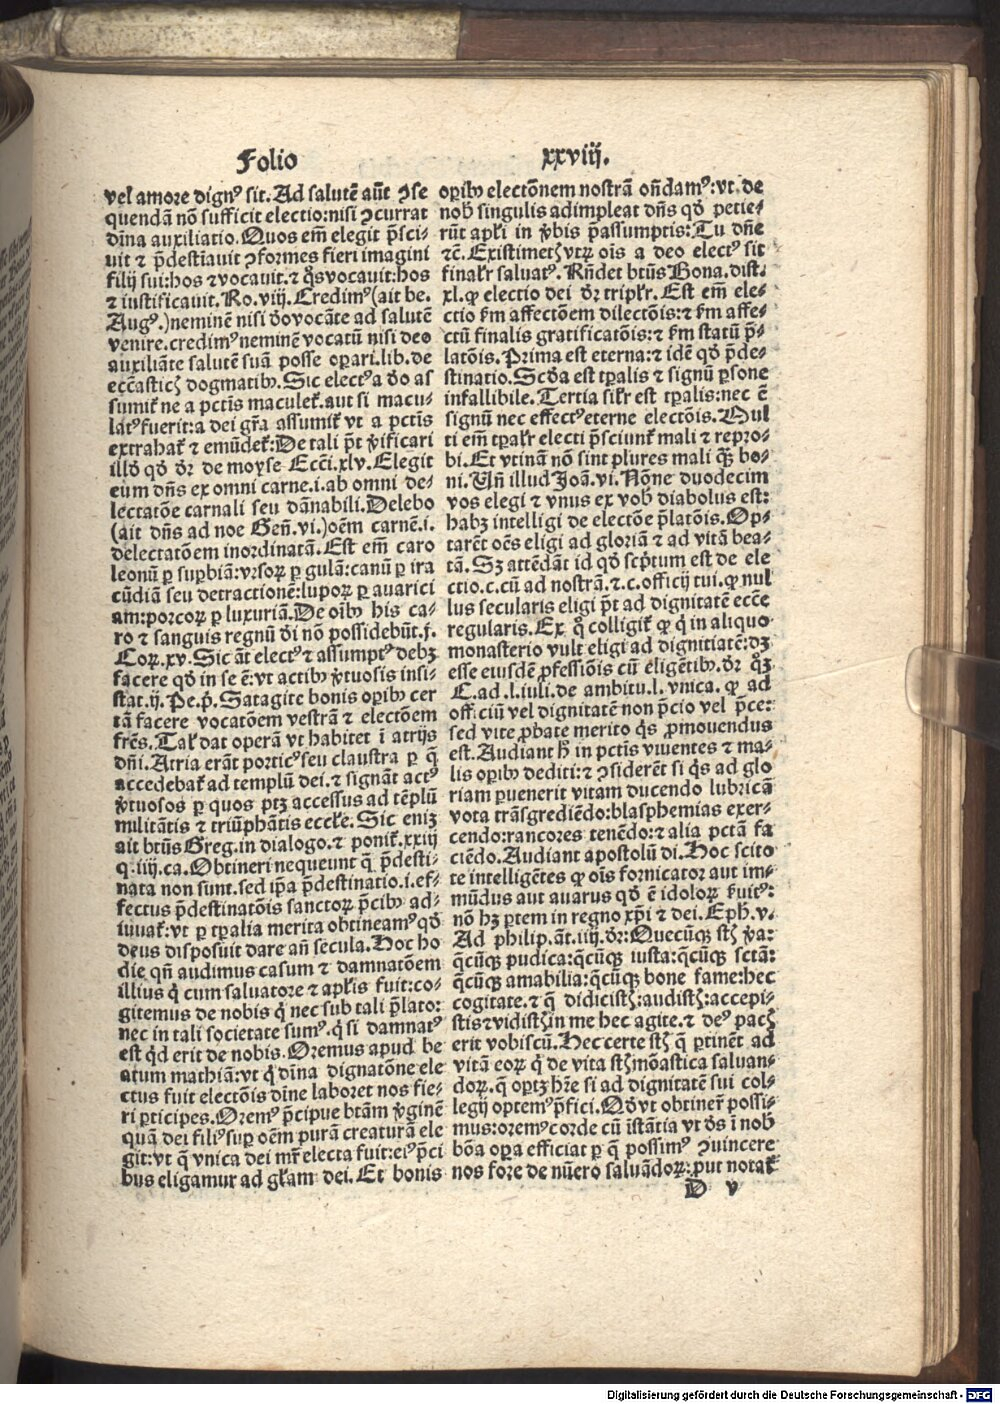 Folio xxviij.
vel amore dignꝰ sit. Ad salutē aūt ꝯse
quendā nō sufficit electio: nisi ꝯcurrat
dīna auxiliatio. Quos em̄ elegit p̄sci⸗
uit ⁊ p̄destīauit ꝯformes fieri imagini
filij sui: hos ⁊ vocauit. ⁊ q̊s vocauit: hos
⁊ iustificauit. Ro. viij. Credimꝰ (ait be.
Augꝰ.) neminē nisi ꝺo vocāte ad salutē
venire. credimꝰ neminē vocatū nisi deo
auxiliāte salutē suā posse oꝑari. lib. de
ecc̄asticꝭ dogmatibꝰ. Sic electꝰ a ꝺo as
sumit᷑ ne a pctīs maculet᷑. aut si macu⸗
latꝰ fuerit: a dei gr̄a assumit᷑ vt a pctīs
extrahat᷑ ⁊ emūdet᷑: De tali p̄t v̓ificari
illd̓ qd̓ dr̄ de moyse Ecc̄i. xlv. Elegit
eum dn̄s ex omni carne. i. ab omni de⸗
lectatōe carnali seu dānabili. Delebo
(ait dn̄s ad noe Gen̄. vi.) oēm carnē. i.
delectatōem inordinatā. Est em̄ caro
leonū ꝑ suꝑbiā: vrsoꝝ ꝑ gulā: canū ꝑ ira
cūdiā seu detractionē: lupoꝝ ꝑ auarici
am: porcoꝝ ꝑ luxuriā. De oībꝰ his ca⸗
ro ⁊ sanguis regnū dī nō possidebūt. j.
Coꝝ. xv. Sic āt electꝰ ⁊ assumptꝰ debꝫ
facere qd̓ in se ē: vt actibꝰ v̓tuosis insi⸗
stat. ij. Pe. p̓. Satagite bonis oꝑibꝰ cer
tā facere vocatōem vestrā ⁊ electōem
frēs. Tal̓ dat operā vt habitet ī atrijs
dn̄i. Atria erāt porticꝰ seu claustra ꝑ q̄
accedebat᷑ ad templū dei. ⁊ signāt actꝰ
v̓tuosos ꝑ quos ptꝫ accessus ad tēplū
militātis ⁊ triūphātis eccl̓e. Sic enīꝫ
ait btūs Greg. in dialogo. ⁊ ponit᷑. xxiij
q. iiij. ca. Obtineri nequeunt q̄ p̄desti⸗
nata non sunt. sed ip̄a p̄destinatio. i. ef⸗
fectus p̄destinatōis sanctoꝝ p̄cibꝰ ad⸗
iuuat᷑: vt ꝑ tꝑalia merita obtineamꝰ qd̓
deus disposuit dare an̄ secula. Hoc ho
die qn̄ audimus casum ⁊ damnatōem
illius q̓ cum saluatore ⁊ apl̓is fuit: co⸗
gitemus de nobis q̓ nec sub tali p̄lato:
nec in tali societate sumꝰ. q̓ si damnatꝰ
est qd̓ erit de nobis. Oremus apud be
atum mathiā: vt q̓ dīna dignatōne ele
ctus fuit electōis dīne laboret nos fie⸗
ri ꝑticipes. Oremꝰ p̄cipue btām v̓ginē
quā dei filiꝰ suꝑ oēm purā creaturā ele
git: vt q̄ vnica dei mr̄ electa fuit: eiꝰ p̄ci
bus eligamur ad gl̓am dei. Et bonis
oꝑibꝰ electōnem nostrā on̄damꝰ: vt de
nob̓ singulis adimpleat dn̄s qd̓ petie⸗
rūt apl̓i in v̓bis p̄assumptis: Tu dn̄e
⁊c̄. Existimetꝭ vtꝝ oīs a deo electꝰ sit
final̓r saluatꝰ. Rn̄det btūs Bona. dist.
xl. ꝙ electio dei dr̄ tripl̓r. Est em̄ ele⸗
ctio ẜm affectōem dilectōis: ⁊ ẜm affe⸗
ctū finalis gratificatōis: ⁊ ẜm statū p̄⸗
latōis. Prima est eterna: ⁊ idē qd̓ p̄de⸗
stinatio. Scd̓a est tꝑalis ⁊ signū ꝑsone
infallibile. Tertia sil̓r est tꝑalis: nec ē
signū nec effectꝰ eterne electōis. Mul
ti em̄ tꝑal̓r electi p̄sciunt᷑ mali ⁊ repro⸗
bi. Et vtinā nō sint plures mali qꝫ̄ bo⸗
ni. Vn̄ illud Joā. vi. Nōne duodecim
vos elegi ⁊ vnus ex vob̓ diabolus est:
habꝫ intelligi de electōe p̄latōis. Op⸗
tarēt oēs eligi ad gloriā ⁊ ad vitā bea⸗
tā. Sꝫ attēdāt id qd̓ scp̄tum est de ele
ctio. c. cū ad nostrā. ⁊. c. officij tui. ꝙ nul
lus secularis eligi p̄t ad dignitatē ecc̄e
regularis. Ex q̊ colligit᷑ ꝙ q̓ in aliquo
monasterio vult eligi ad dignitiatē: dꝫ
esse eiusdē ꝓfessiōis cū eligētibꝰ. dr̄ q̊ꝫ
C. ad. l. iuli. de ambitu. l. vnica. ꝙ ad
officiū vel dignitatē non p̄cio vel p̄ce:
sed vite ꝓbate merito q̓s ꝓmouendus
est. Audiant h̓ in pctīs viuentes ⁊ ma⸗
lis oꝑibꝰ dediti: ⁊ ꝯsiderēt si q̓s ad glo
riam ꝑuenerit vitam ducendo lubricā
vota trāsgrediēdo: blasphemias exer⸗
cendo: rancores tenēdo: ⁊ alia pctā fa
ciēdo. Audiant apostolū di. Hoc scito
te intelligētes ꝙ oīs fornicator aut im⸗
mūdus aut auarus qd̓ ē idoloꝝ ẜuitꝰ:
nō hꝫ ꝑtem in regno xp̄i ⁊ dei. Eph̓. v.
Ad philip. āt. iiij. dr̄: Quecūqꝫ stꝭ v̓a:
q̄cūqꝫ pudica: q̄cūqꝫ iusta: q̄cūqꝫ sctā:
q̄cūqꝫ amabilia: q̄cūqꝫ bone fame: hec
cogitate. ⁊ q̄ didicistꝭ: audistꝭ: accepi⸗
stis ⁊ vidistꝭ in me hec agite. ⁊ deꝰ pacꝭ
erit vobiscū. Hec certe stꝭ q̄ ꝑtinēt ad
vitā eoꝝ q̓ de vita stꝭ mōastica saluan⸗
doꝝ. q̄ oꝑtꝫ hr̄e si ad dignitatē sui col⸗
legij optemꝰ p̄fici. Qd̓ vt obtiner̄ possi⸗
mus: oremꝰ corde cū īstātia vt ds̄ ī nob̓
bōa oꝑa efficiat ꝑ q̄ possimꝰ ꝯuincere
nos fore de nūero saluādoꝝ: put notat᷑
D v
Digitalisierung gefördert durch die Deutsche Forschungsgemeinschaft - DFG